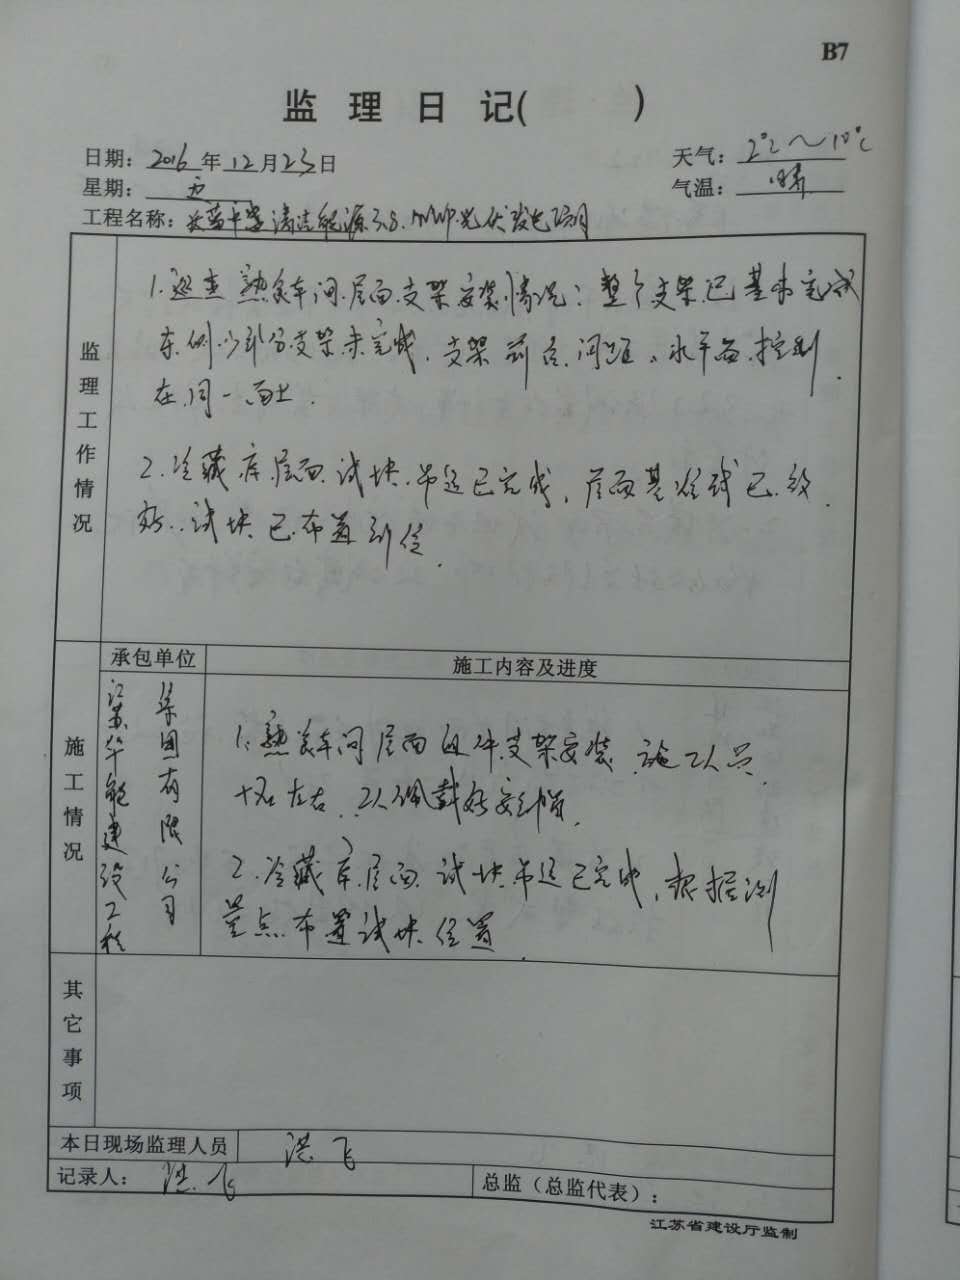 B7
监 理 日 记(        )
日期：2016年12月23日
天气：2℃～10℃
星期：五
气温：晴
工程名称：清洁能源3.8MWP光伏发电项目
监理工作情况
1.巡查熟食车间屋面支架安装情况：整个支架已基本完成
东侧少部分支架未完成，支架前后间距、水平面控制
在同一面上．
2.冷藏库屋面试块吊运已完成，屋面基准线已放
好．试块已布置到位．
施工情况
承包单位
施工内容及进度
江苏华能建设工程
集团有限公司
1.熟食车间屋面组件支架安装，施工人员
十名左右，工人佩戴好安全帽．
2.冷藏库屋面试块吊运已完成，根据测
量点布置试块位置．
其它事项
本日现场监理人员 洪飞
记录人：洪飞
总监（总监代表）：
江苏省建设厅监制